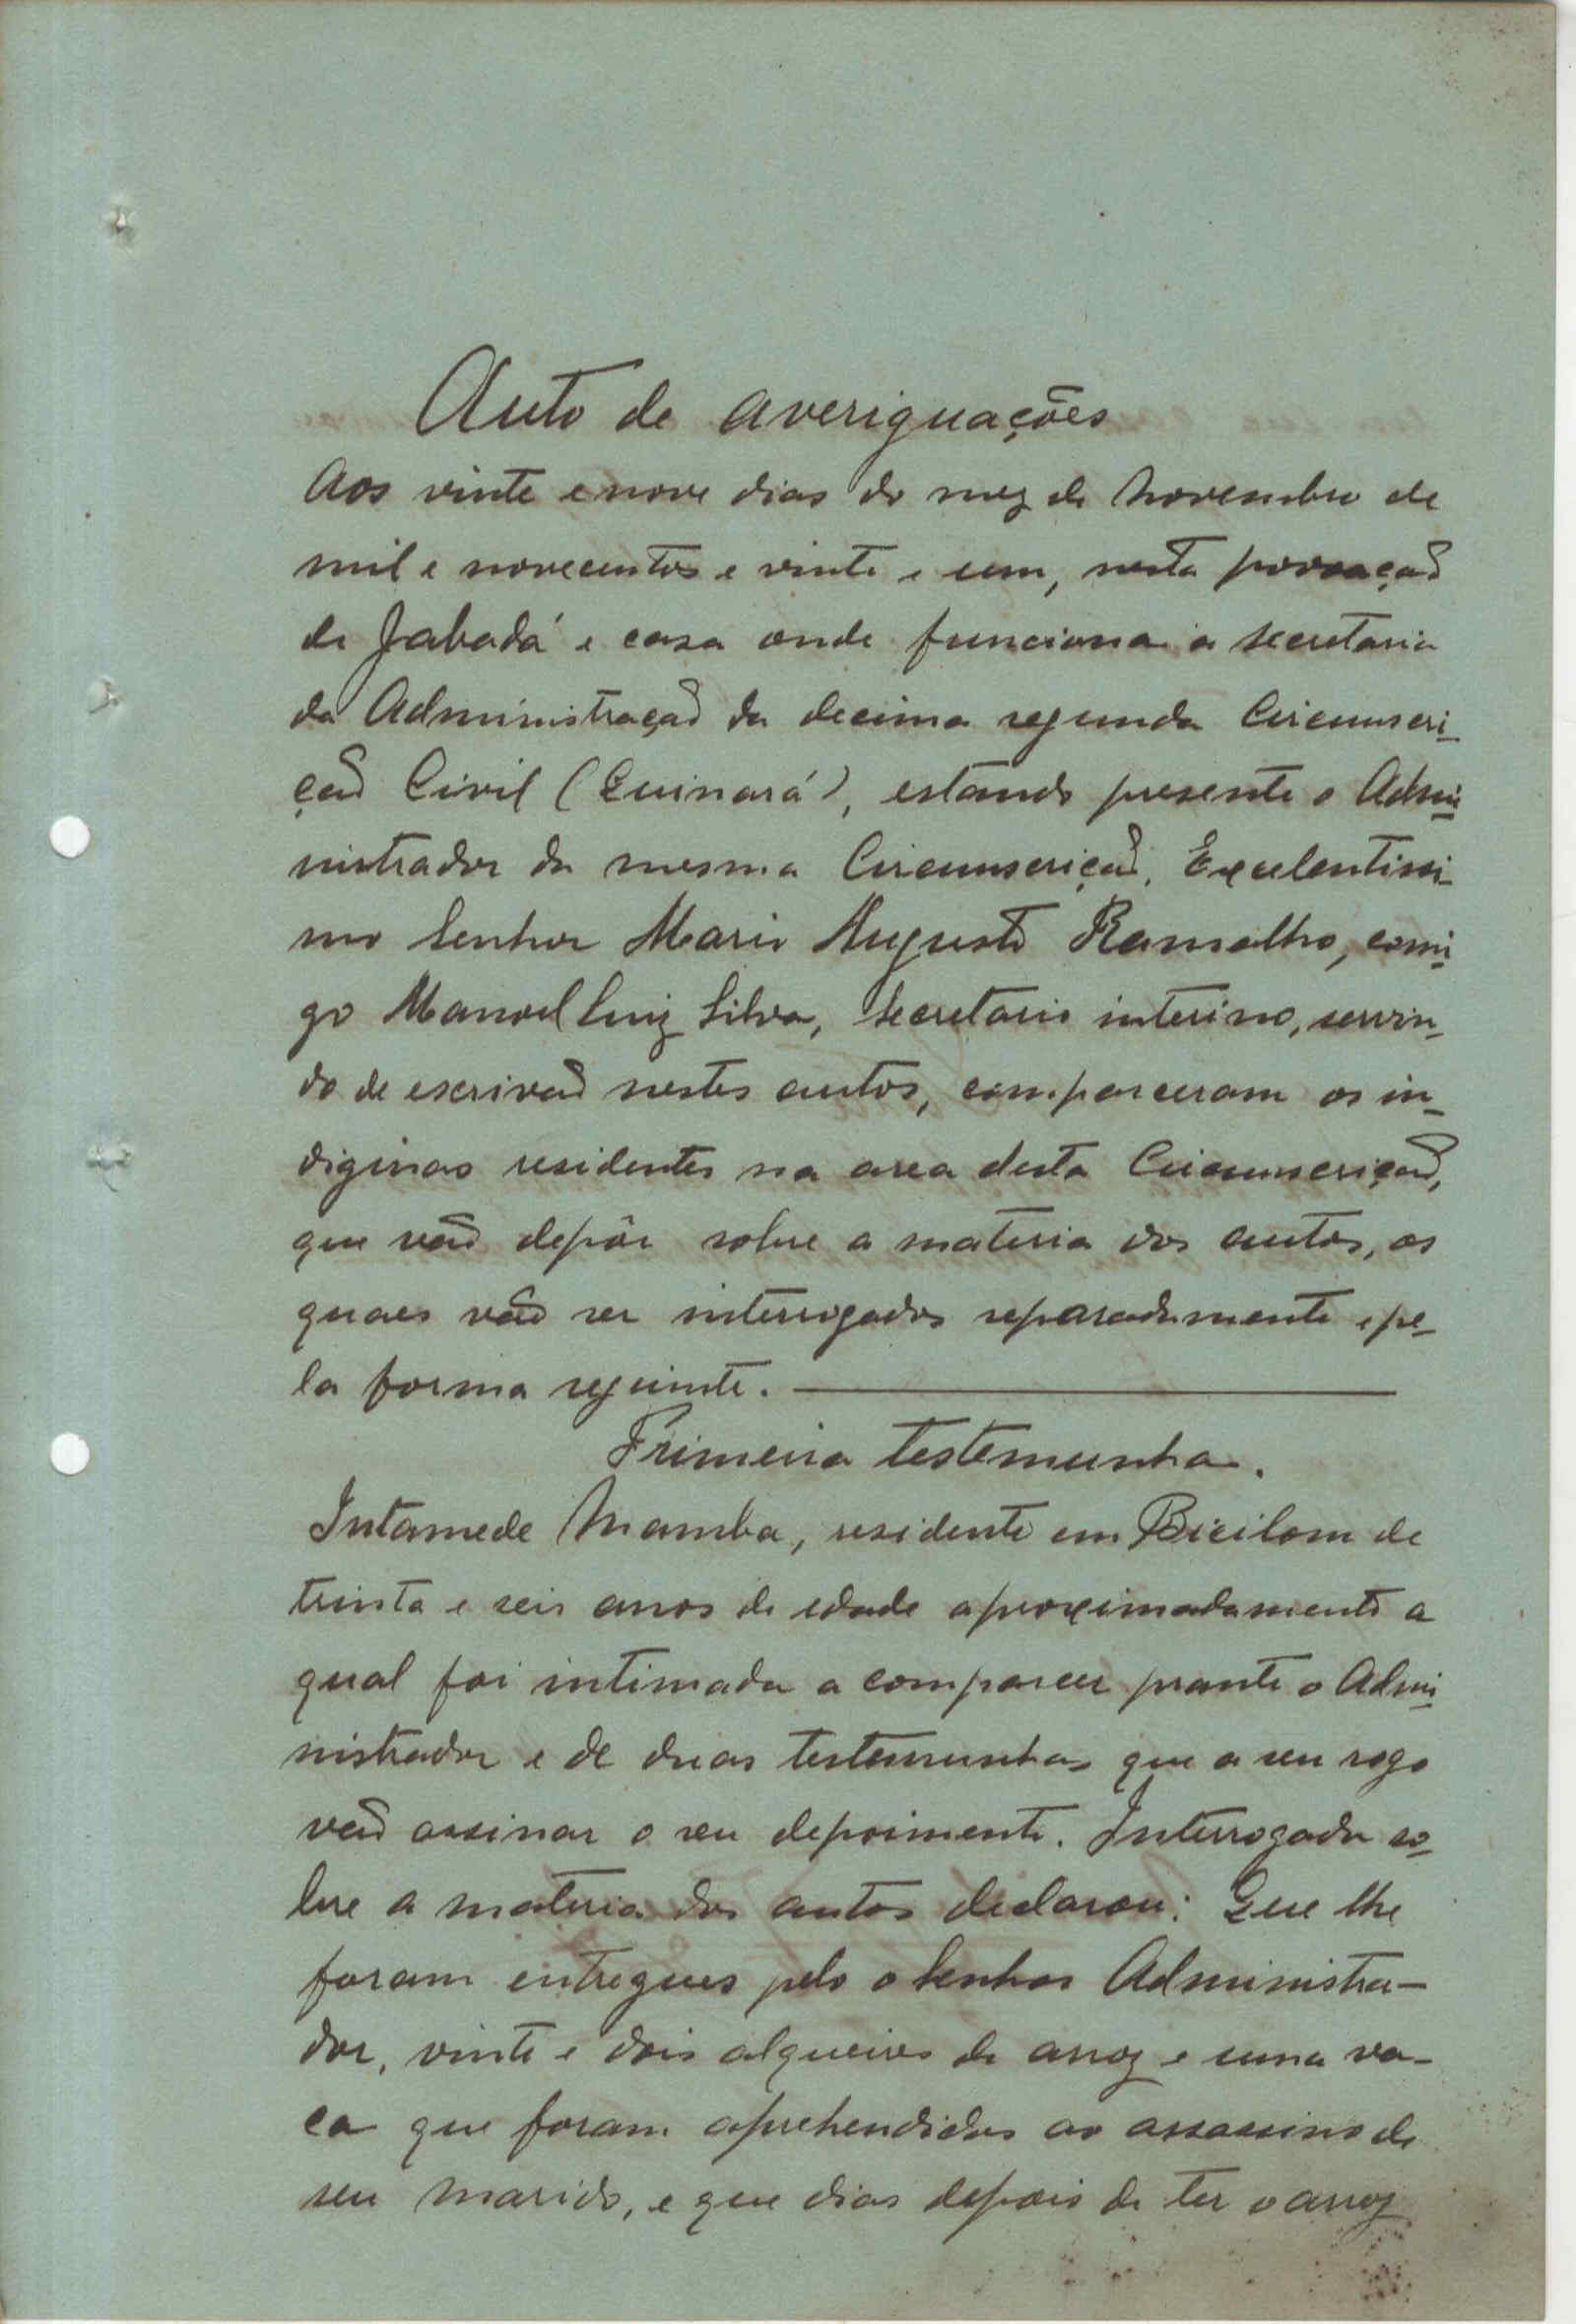 Auto de averiguações
Aos vinte e nove dias do mez de Novembro de
mil e novecentos e vinte e um, nesta povoação
de Jabadá e casa onde funciona a secretaria
da Administração da decima segunda Circunscri-
ção Civil (Quinará), estando presente o Admi-
nistrador da mesma Circunscrição, Excelentissi-
mo Senhor Mario Augusto Ramalho, comi-
go Manoel Luiz Silva, Secretario interino, servin-
do de escrivão nestes autos, compareceram os in-
diginas residentes na area desta Circunscrição,
que vão depôr sobre a materia dos autos, os
quaes vão ser interrogados separadamente e pe-
la forma seguinte.
Primeira testemunha.
Intamede Mamba, residente em Bicilom de
trinta e seis anos de edade aproximadamente a
qual foi intimada a comparecer prante o Admi-
nistrador e de duas testemunhas que a seu rogo
vão assinar o seu depoimento. Interrogada so-
bre a materia dos autos declarou: Que lhe
foram entregues pelo o Senhor Administra-
dor, vinte e dois alqueires de arroz e uma va-
ca que foram aprehendidos ao assassino de
seu marido, e que dias depois de ter o arroz